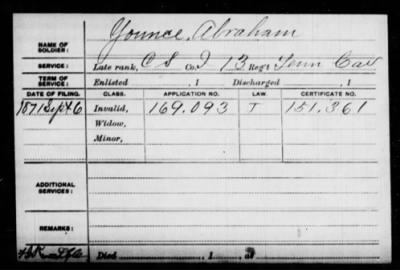 Younce, Abraham
NAME OF SOLDIER:
SERVICE: Late rank, C S Co. I 13 Reg't Tenn Cav
TERM OF SERVICE: Enlisted , 1 Discharged , 1
DATE OF FILING. CLASS. APPLICATION NO. LAW. CERTIFICATE NO.
1871 Sept 6 Invalid, 169.093 I 151.361
Widow,
Minor,
ADDITIONAL SERVICES:
REMARKS:
Died , 1 , at